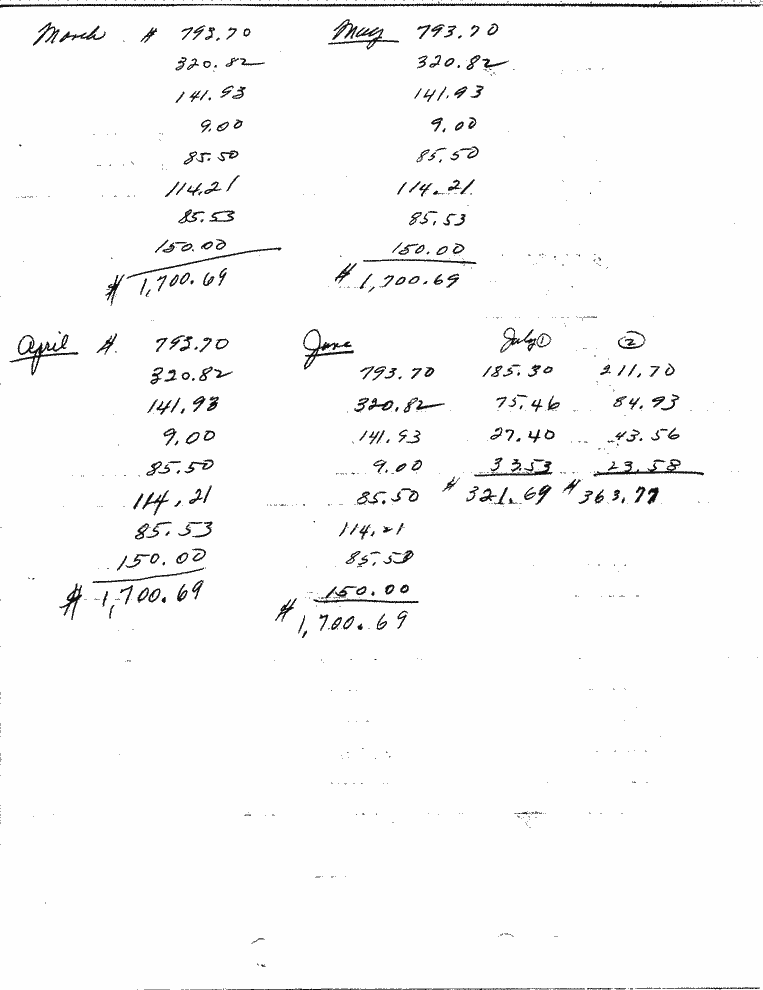 March $ 793.70
320.82
141.93
9.00
85.50
114.21
85.53
150.00
$ 1,700.69
May 793.70
320.82
141.93
9.00
85.50
114.21
85.53
150.00
$ 1,700.69
April $ 793.70
320.82
141.93
9.00
85.50
114.21
85.53
150.00
$ 1,700.69
June
793.70
320.82
141.93
9.00
85.50
114.21
85.53
150.00
$ 1,700.69
July ①
185.30
75.46
27.40
33.53
$ 321.69
②
211.70
84.93
43.56
23.58
$ 363.77